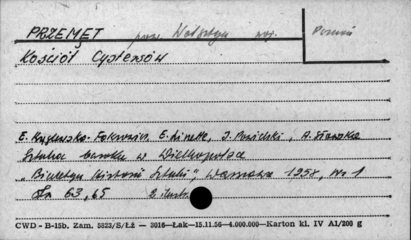 PRZEMĘT pow. Wolsztyn woj. Poznań
Kościół Cystersów
E. Linette, A. Sławska
Sztuka baroku w Wielkopolsce
"Biuletyn Historii Sztuki", Warszawa 1958, Nr 1
63, 65 2 ilustr.
CWD - B-15b. Zam. 5823/S/Łż — 3016—Łak—15.11.56—4.000.000—Karton kl. IV A1/200 g